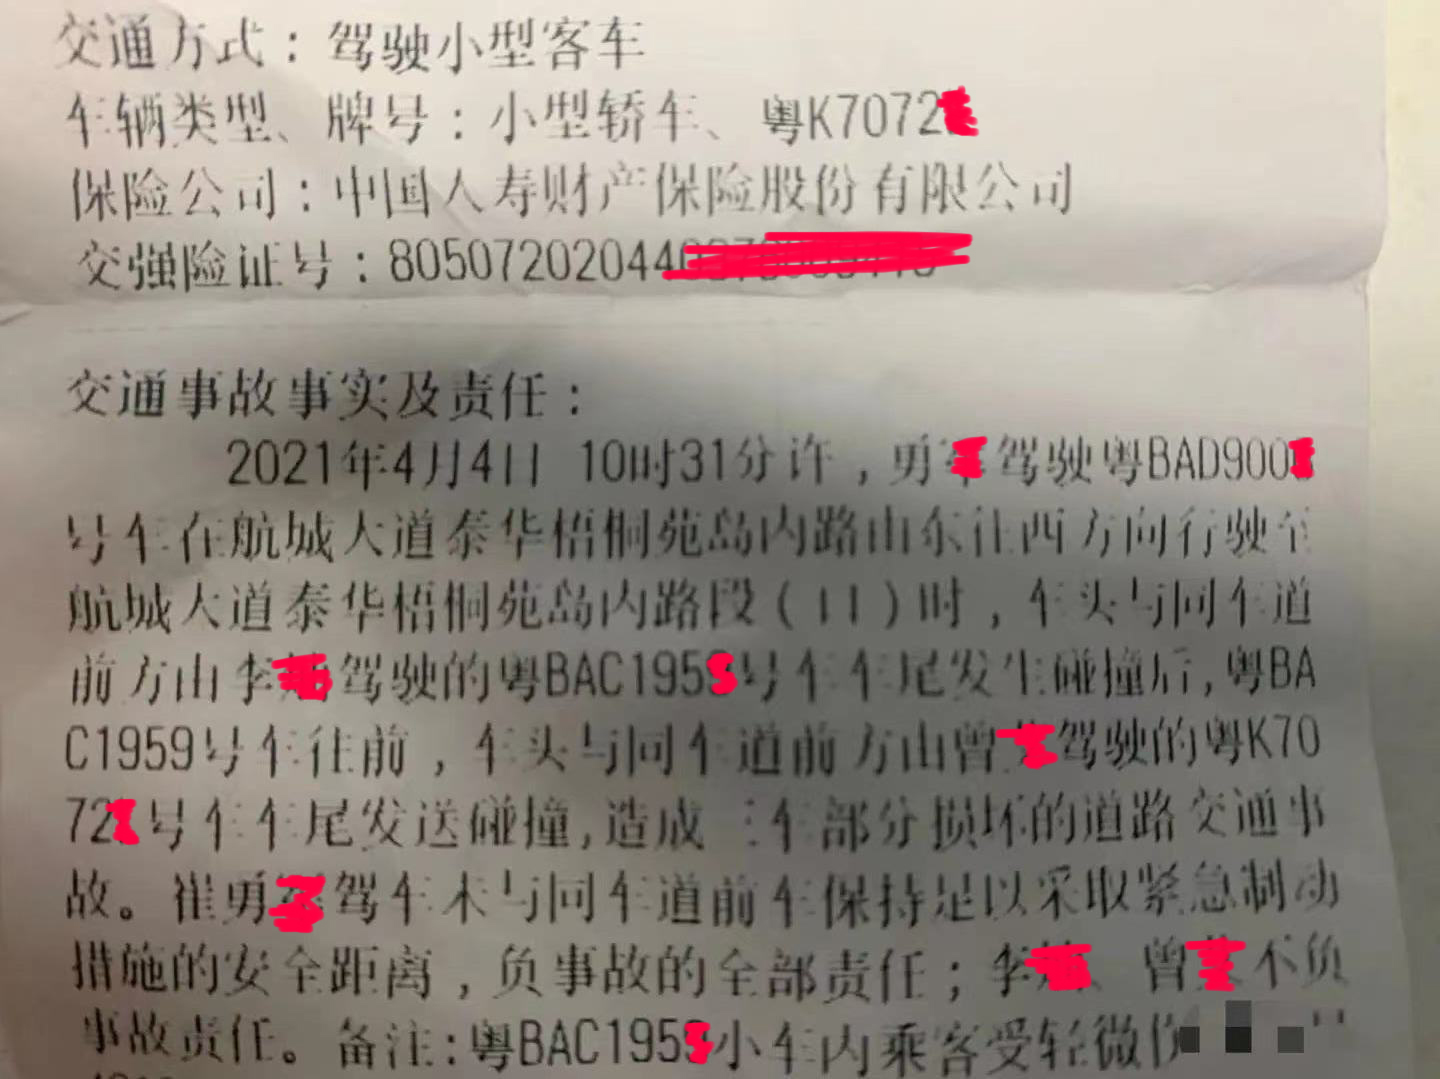 交通方式：驾驶小型客车
车辆类型、牌号：小型轿车、粤K7072
保险公司：中国人寿财产保险股份有限公司
交强险证号：805072020440
交通事故事实及责任：
2021年4月4日 10时31分许，勇 驾驶粤BAD900
号车在航城大道泰华梧桐苑岛内路由东往西方向行驶至
航城大道泰华梧桐苑岛内路段(11)时，车头与同车道
前方由李 驾驶的粤BAC195 号车车尾发生碰撞后，粤BA
C1959号车往前，车头与同车道前方由曾 驾驶的粤K70
72 号车车尾发送碰撞，造成三车部分损坏的道路交通事
故。崔勇 驾车未与同车道前车保持足以采取紧急制动
措施的安全距离，负事故的全部责任；李 、曾 不负
事故责任。备注：粤BAC195 小车内乘客受轻微伤